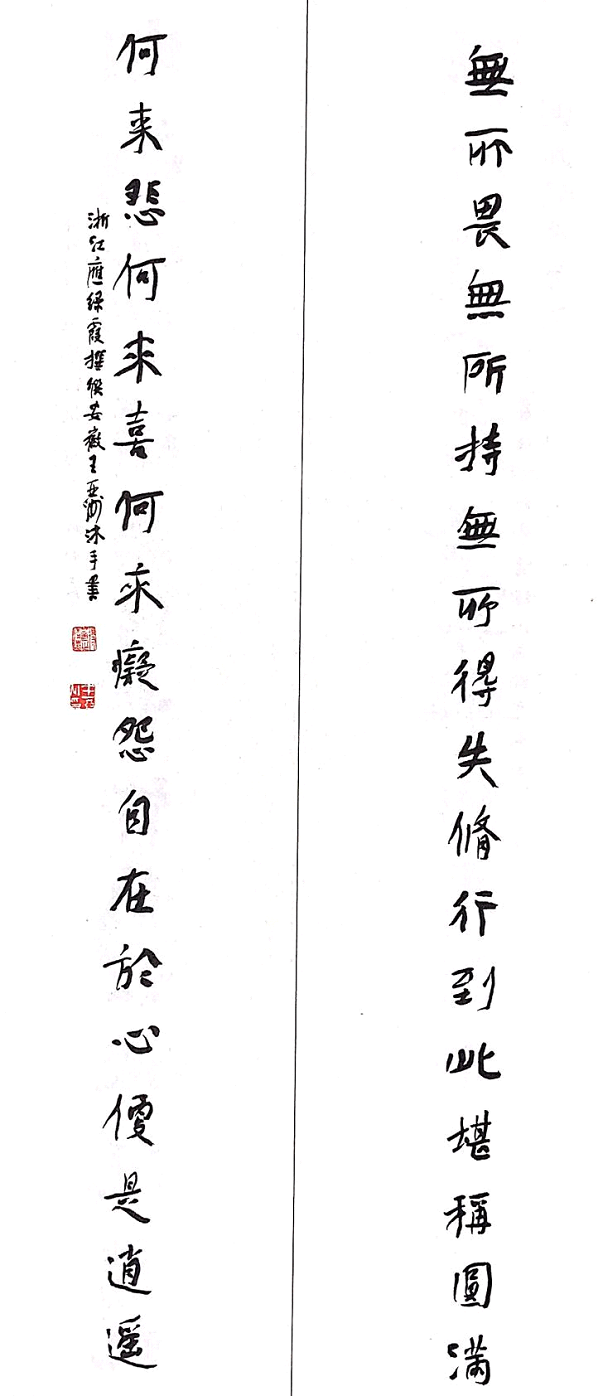 無所畏無所持無所得失脩行到此堪稱圓滿
何来悲何來喜何來癡怨自在於心便是逍遥
浙江應緑霞撰聯安徽王亞洲沐手書